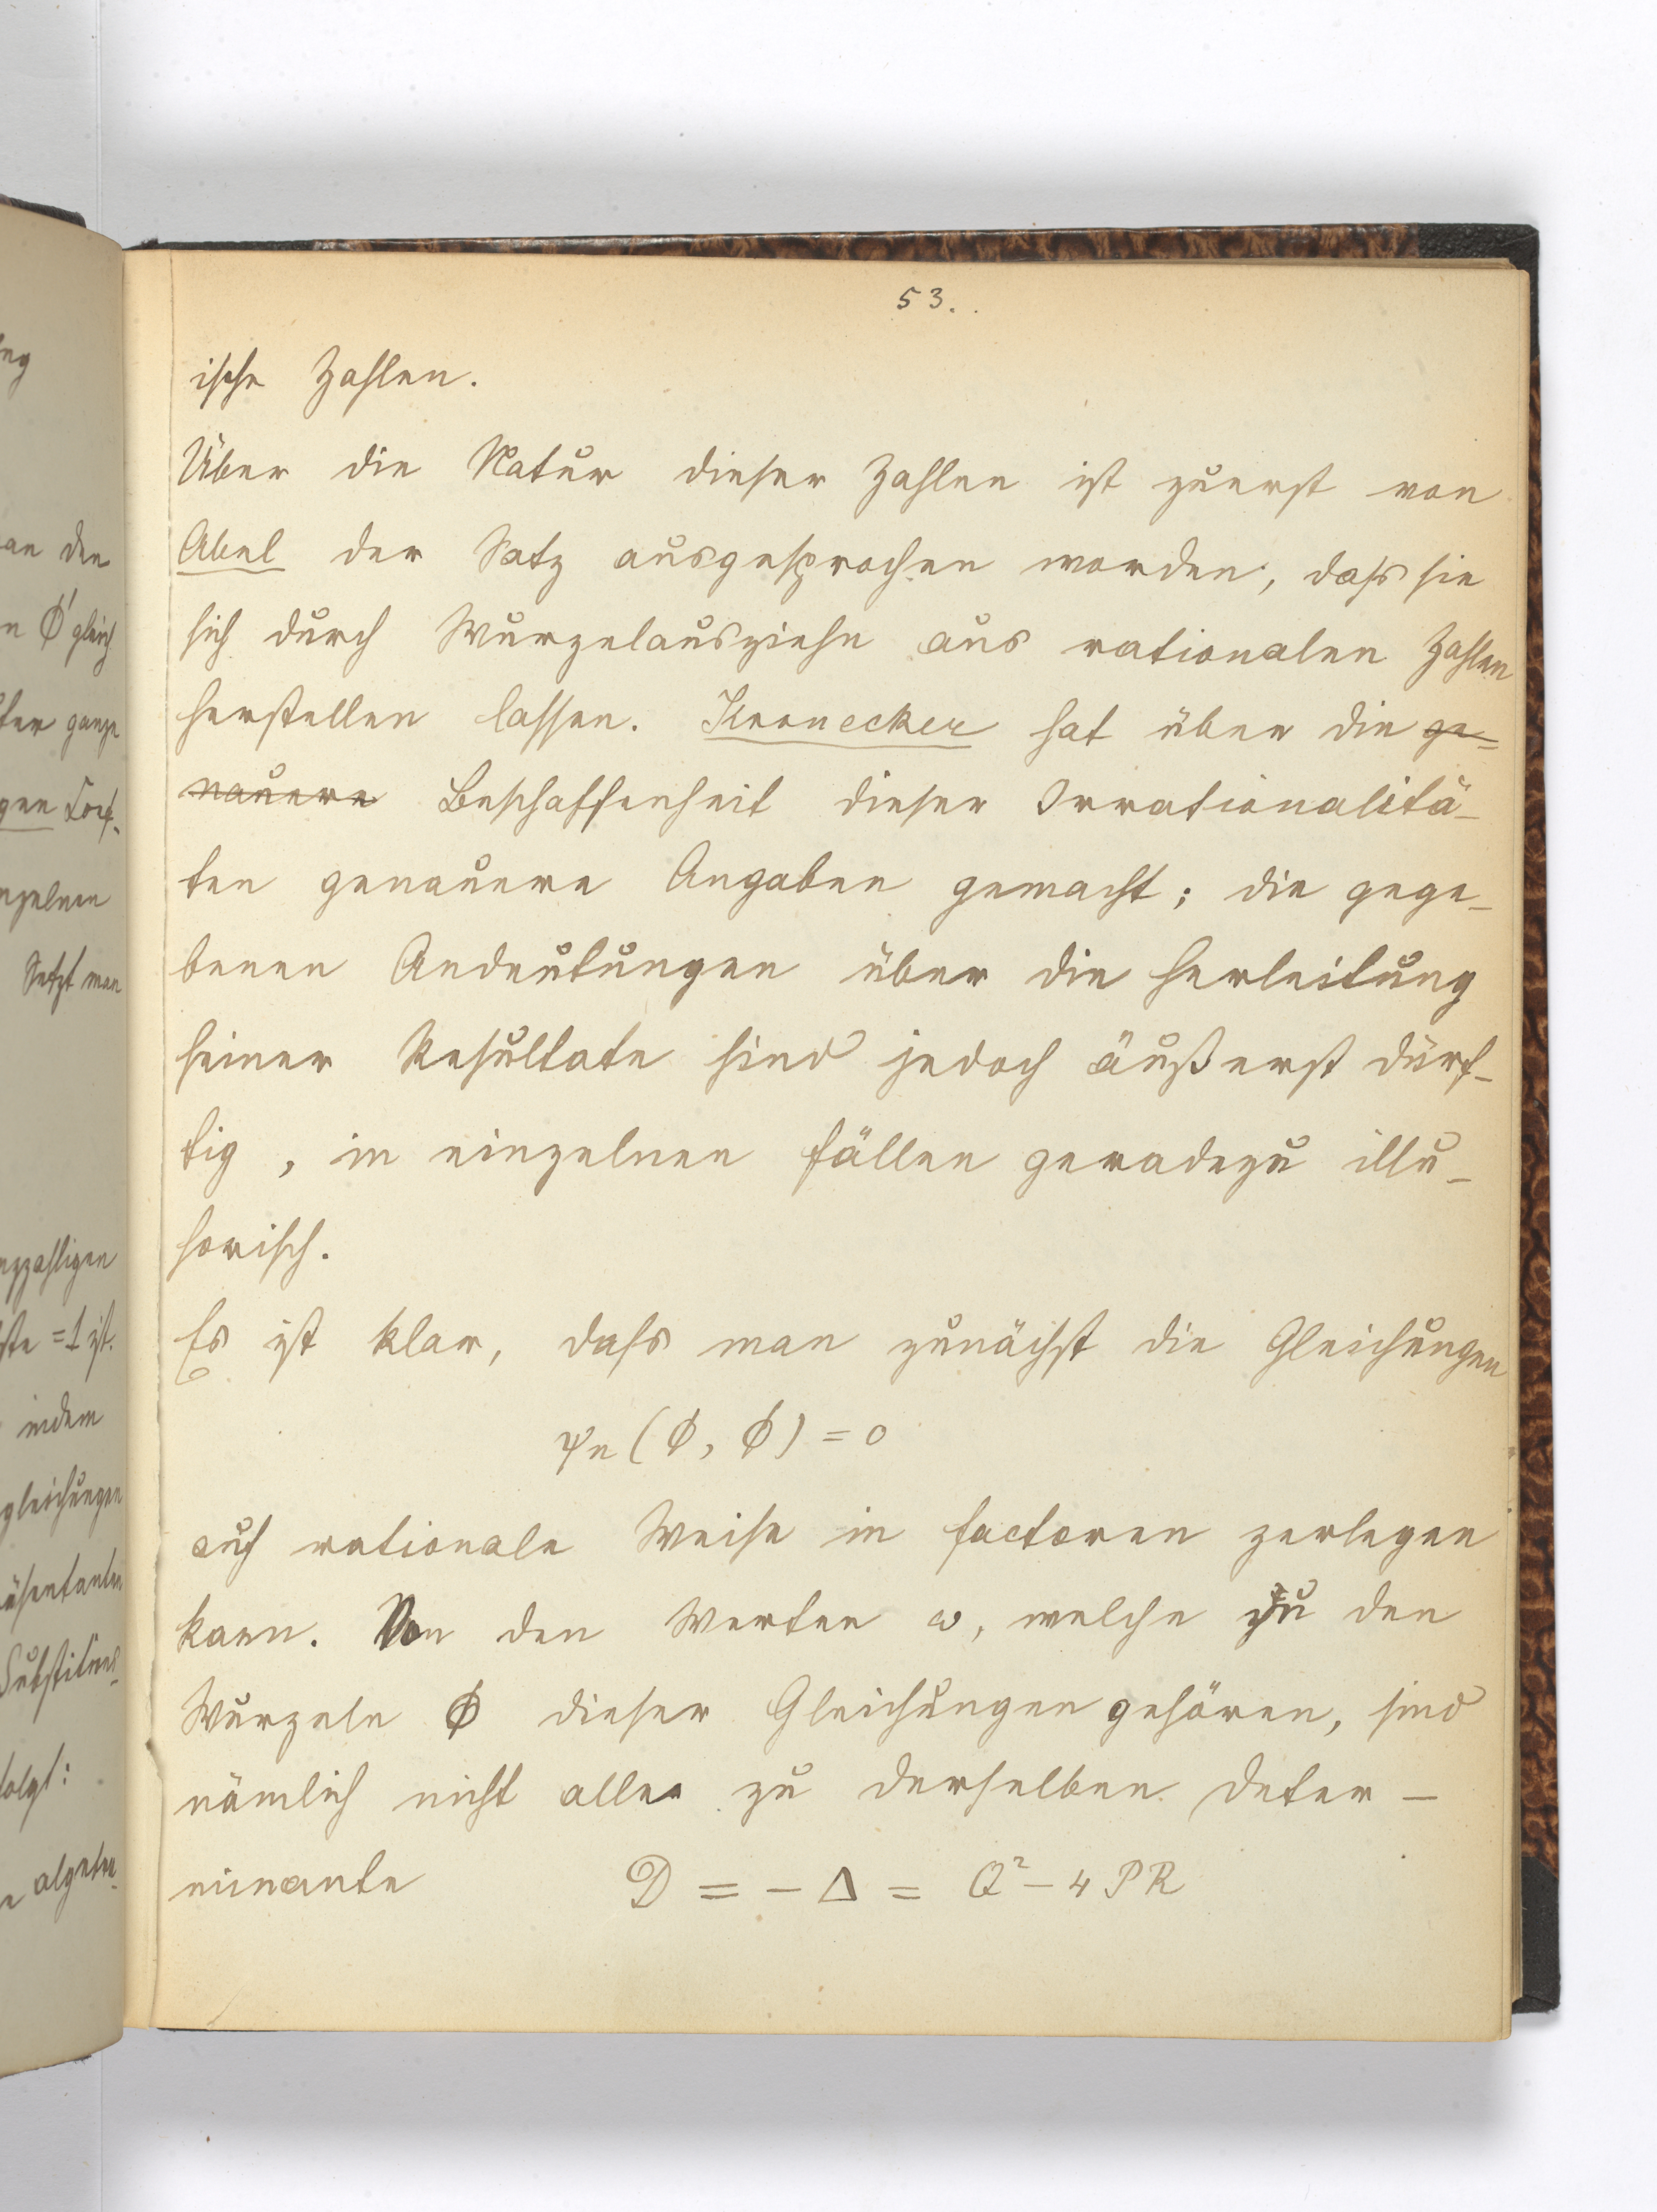 53.
ische Zahlen.
Über die Natur dieser Zahlen ist zuerst von
Abel der Satz ausgesprochen worden, dass sie
sich durch Wurzelausziehn aus rationalen Zahlen
herstellen lassen. Kronecker hat über die ge=
nauere Beschaffenheit dieser Irrationalitä-
ten genauere Angaben gemacht; die gege-
benen Andeutungen über die Herleitung
seiner Resultate sind jedoch äußerst dürf-
tig, in einzelnen Fällen geradezu illu-
sorisch.
Es ist klar, dass man zunächst die Gleichungen
ψn (ϕ, ϕ) = 0
auf rationale Weise in Factoren zerlegen
kann. Von den Werten ω, welche zu den
Wurzeln ϕ dieser Gleichungen gehören, sind
nämlich nicht alle zu derselben Deter-
minante D = - Δ = Q² - 4 PR
an den
ϕ' gleich
ganze
Setzt man
= 1 ist.
indem